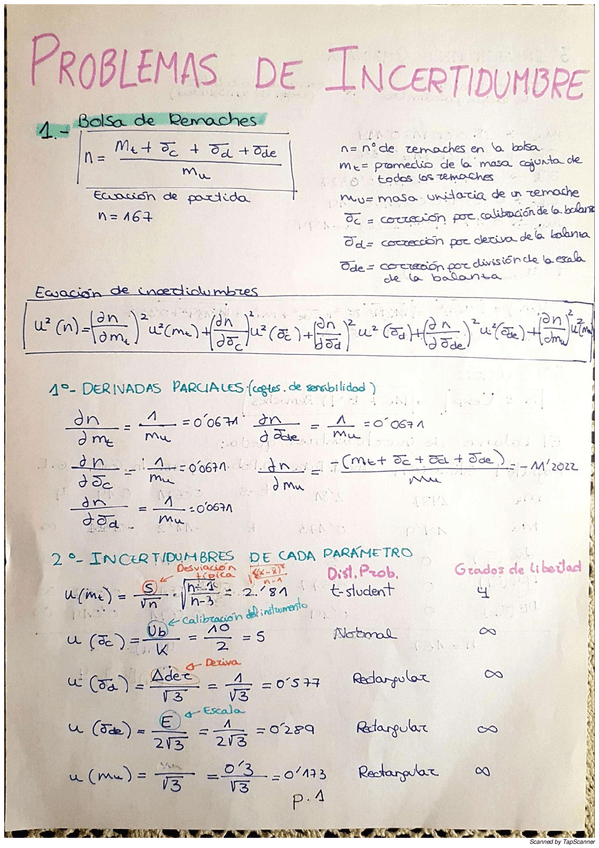 PROBLEMAS DE INCERTIDUMBRE
1.- Bolsa de Remaches
n = (mt + δc + δd + δde) / mu
Ecuación de partida
n = 167
n = nº de remaches en la bolsa
mt = promedio de la masa cojunta de
todos los remaches
mu = masa unitaria de un remache
δc = correción por calibración de la balanza
δd = corrección por deriva de la balanta
δde = correción por división de la escala
de la balanta
Ecuación de incertidumbres
u²(n) = (∂n/∂mt)² u²(mt) + (∂n/∂δc)² u²(δc) + (∂n/∂δd)² u²(δd) + (∂n/∂δde)² u²(δde) + (∂n/∂mu)² u²(mu)
1º- DERIVADAS PARCIALES (coftes. de sensibilidad)
∂n/∂mt = 1/mu = 0'0671 ∂n/∂δde = 1/mu = 0'0671
∂n/∂δc = 1/mu = 0'0671 ∂n/∂mu = -(mt + δc + δd + δde)/mu = -11'2022
∂n/∂δd = 1/mu = 0'0671
2º- INCERTIDUMBRES DE CADA PARÁMETRO
Desviación típica
Dist. Prob. Grados de libertad
u(mt) = S/√n · √(n-1/n-3) = 2'81 t-student 4
Calibración del instrumento
u(δc) = Ub/K = 10/2 = 5 Normal ∞
Deriva
u(δd) = Δder/√3 = 1/√3 = 0'577 Rectangular ∞
Escala
u(δde) = E/2√3 = 1/2√3 = 0'289 Rectangular ∞
u(mu) = /√3 = 0'3/√3 = 0'173 Rectangular ∞
p. 1
Scanned by TapScanner